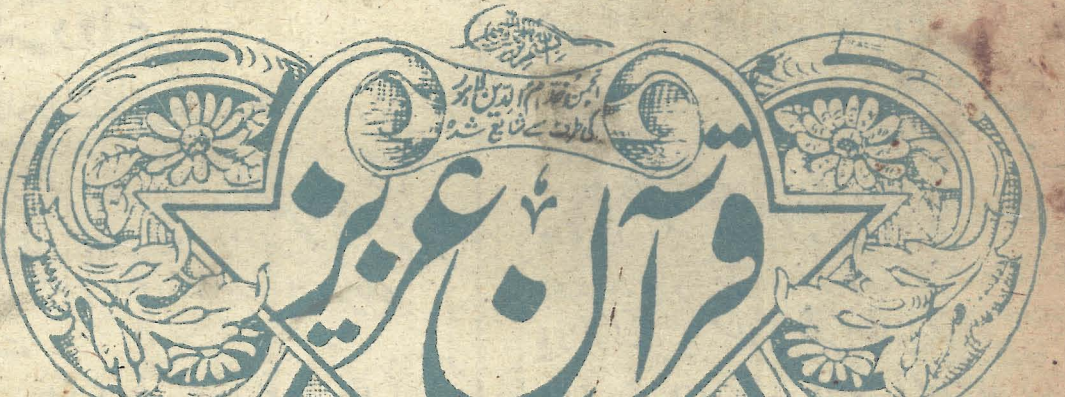 انجمن خدام الدین لاہور
کی طرف سے شائع شدہ
قرآن عزیز